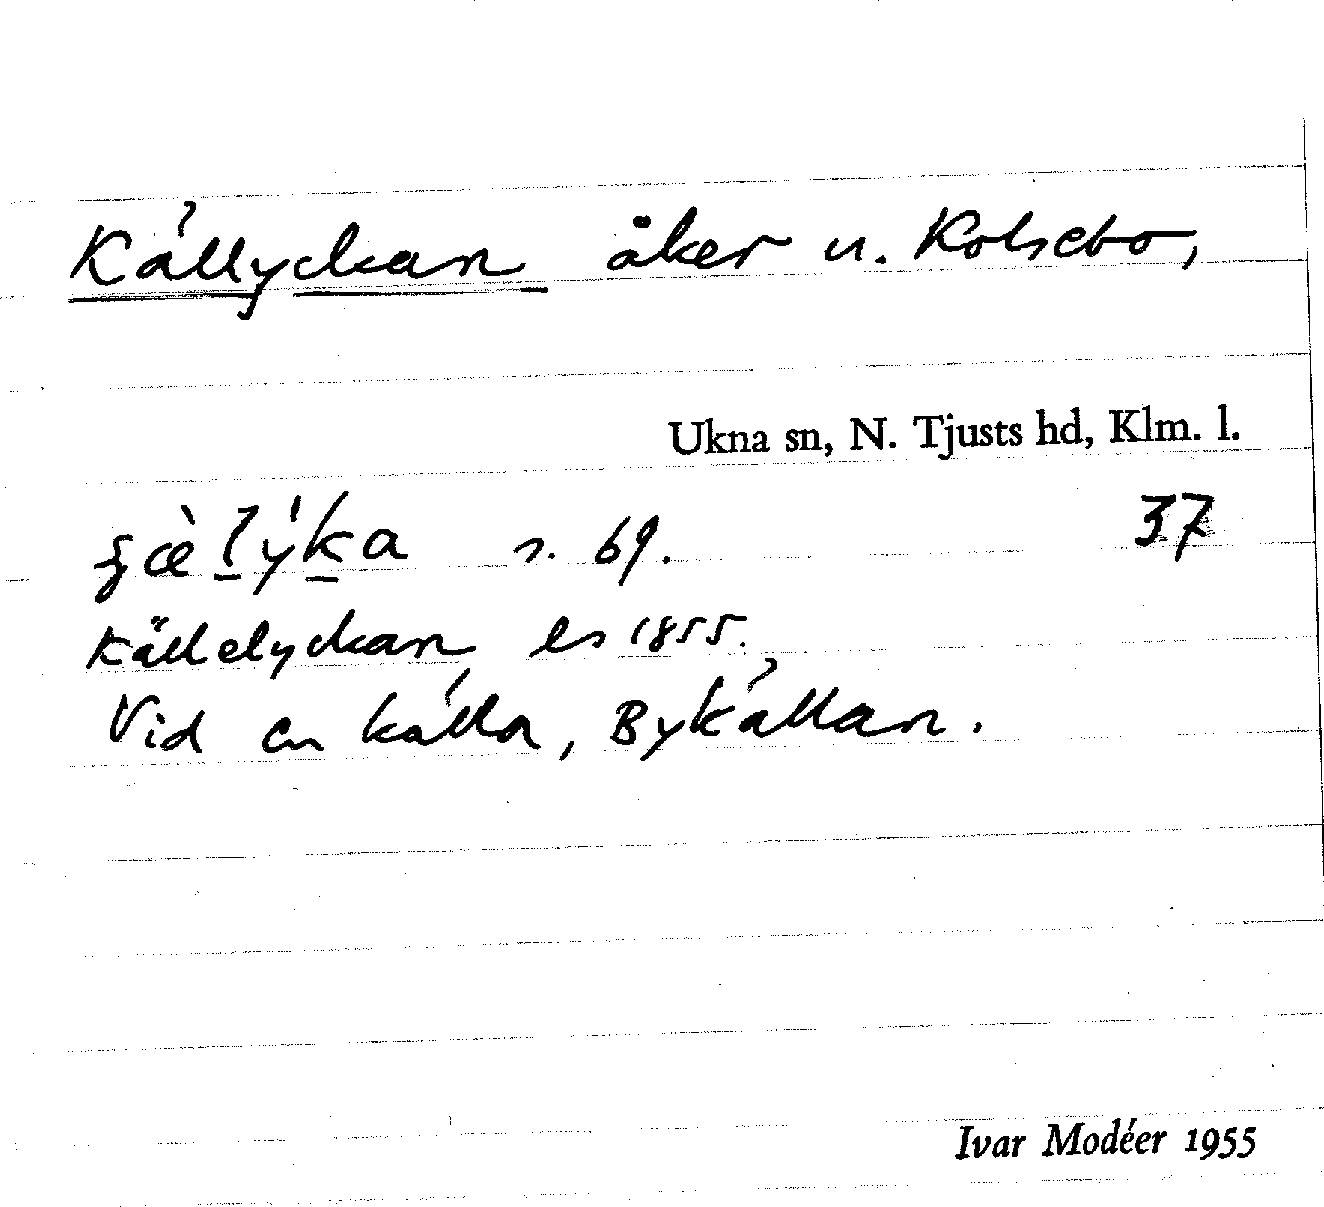 Källyckan åker u. Kolsebo,
Ukna sn, N. Tjusts hd, Klm. l.
s. 69. 37
Källelyckan ls 1855.
Vid en källa, Bykällan.
Ivar Modéer 1955